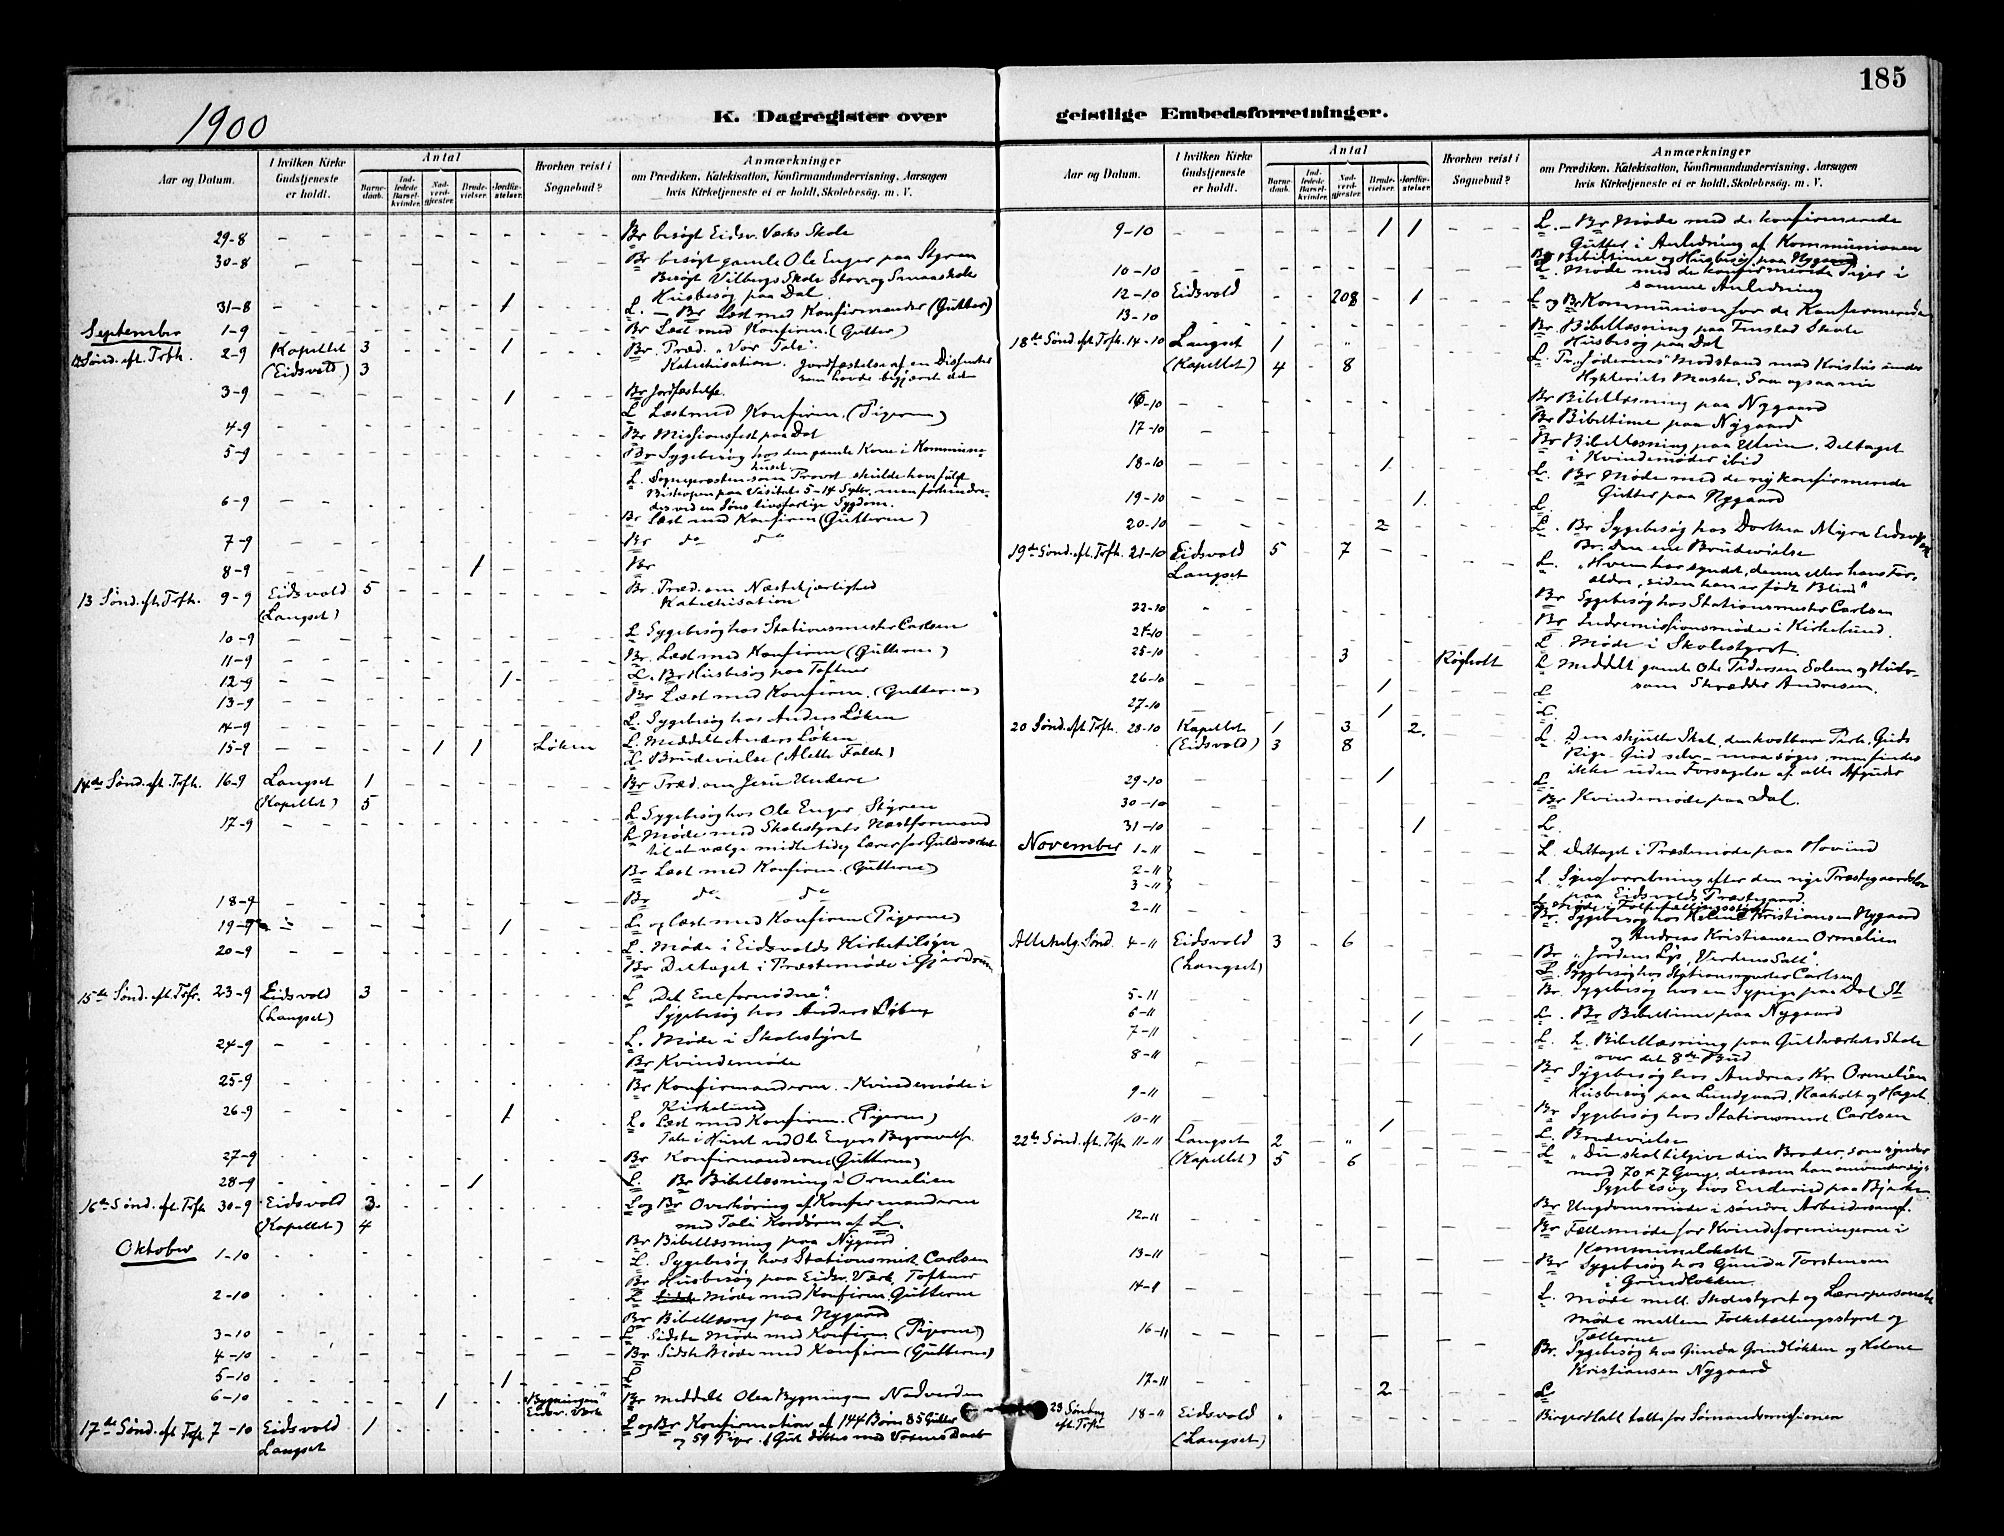 185
1900
K. Dagregister over geistlige Embedsforretninger.
Aar og Datum.
I hvilken Kirke Gudstjeneste er holdt.
Antal
Barne-daab.
Ind-ledede Barsel-kvinder.
Nad-verd-gjester.
Brude-vielser.
Jordfæ-stelser.
Hvorhen reist i Sognebud?
Anmærkninger
om Prædiken, Katekisation, Konfirmandundervisning, Aarsagen
hvis Kirketjeneste ei er holdt, Skolebesøg m. V.
29-8 Br besøgt Eidsv. Værks Skole
30-8 Br besøgt gamle Ole Enger paa Styren
Besøgt Vilbergs Skole Stor- og Smaaskole
Husbesøg paa Dal.
31-8 1 L. – Br Læst med Konfirmander (Gutter)
September 1-9 Br Læst med Konfirm. (Gutter)
12 Sønd. eft. Trefh. 2-9 Kapellet 3 1 Br. Præd. "Vor Tale".
(Eidsvold) 3 Katechisation. Jordfæstelse af en Dissenter
som havde begjæret det
3-9 1 Br Jordfæstelse.
L Læst med Konfirm. (Pigerne)
4-9 Br Missionsfest paa Dal
5-9 Br Sygebesøg hos den gamle Kone i Kommune-
huset.
L. Sognepræsten som Provst skulde have fulgt
Bispen paa Visitats 5-14 Septbr, men forhindre-
des ved en Søns livsfarlige Sygdom.
6-9 Br Læst med Konfirm (Gutterne)
7-9 Br do do
8-9 1 Br
13 Sønd. eft. Trefh. 9-9 Eidsvold 5 Br. Præd. om Næstekjærlighed
(Langset) Katechisation
10-9 L Sygebesøg hos Stationsmester Carlsen
11-9 Br. Læst med Konfirm (Gutterne)
12-9 1 L. Br Husbesøg paa Toftner
13-9 Br Læst med Konfirm. (Gutterne)
14-9 L. Sygebesøg hos Anders Løken
15-9 1 1 Løken L. Meddelt Anders Løken
L. Brudevielse (Alette Falck)
14de Sønd. eft. Trefh. 16-9 Langset 1 Br Præd. om Jesu Undere
(Kapellet) 5
17-9 L Sygebesøg hos Ole Enger, Styren
L Møde med Skolestyrets Næstformand
til at vælge midlertidig Lærer for Guldværket
Br Læst med Konfirm. (Gutterne)
18-9 Br do do
19-9 1 L og læst med Konfirm (Pigerne)
20-9 L. Møde i Eidsvolds Kirketilsyn
Br Deltaget i Præstemøde i Gjerdrum
15de Sønd. eft. Trefh. 23-9 Eidsvold 3 L "Det Ene fornødne".
(Langset) Sygebesøg hos Anders Løken
24-9 L. Møde i Skolestyret
Br Kvindemøde
25-9 Br Konfirmanderne. – Kvindemøde i
Kirkelund
26-9 1 L. Læst med Konfirm. (Pigerne)
Tale i Huset ved Ole Engers Begravelse
27-9 Br Konfirmanderne (Gutterne)
28-9 1 L. Br Bibellæsning i Ormelien
16de Sønd. eft. Trefh 30-9 Eidsvold 3. L og Br Overhøring af Konfirmanderne
(Kapellet) 4 med Tale i Kordøren af L.
Br Bibellæsning paa Nygaard
Oktober 1-10 L. Sygebesøg hos Stationsmest. Carlsen
Br Husbesøg paa Eidsv. Værk, Toftner
2-10 L Møde med Konfirm. Gutterne
Br Bibellæsning paa Nygaard
3-10 L Sidste Møde med Konfirm (Pigerne)
4-10 Br Sidste Møde med Konfirm (Gutterne)
5-10 1 L
6-10 1 "Bygningen" Eidsv. Værk Br meddelt Olea Bygningen Nadverden
17de Sønd. eft. Trefh. 7-10 Eidsvold 1 L og Br Konfirmation af 144 Børn 85 Gutter
Langset og 59 Piger. 1 Gut døbtes med Voxnes Daab
9-10 1 1 L. – Br Møde med de konfirmerede
Gutter i Anledning af Kommunionen
Br Bibeltime og Husbesøg paa Nygaard
10-10 L. Møde med de konfirmerede Piger i
samme Anledning
12-10 Eidsvold 208 1 L og Br Kommunion for de Konfirmerede
13-10 Br. Bibellæsning paa Finstad Skole
Husbesøg paa Dal
18de Sønd. eft. Trefh. 14-10 Langset 1 " L. Pr. "Jødernes" Modstand mod Kristus under
(Kapellet) 4 8 Hykleriets Maske, Som ogsaa nu
16-10 Br Bibellæsning paa Nygaard
17-10 Br Bibeltime paa Nygaard
Br Bibellæsning paa Ulvin. Deltaget
i Kvindemøder ibid
18-10 1 L. Br Møde med de nykonfirmerede
Gutter paa Nygaard
19-10 1. L.
20-10 2 L. Br Sygebesøg hos Dorthea Myra Eidsv.
Br. den ene Brudevielse
19de Sønd. eft. Trefh. 21-10 Eidsvold 5 7 L. "Hvem har syndet, denne eller hans For-
Langset ældre, siden han er født Blind"
22-10 Br Sygebesøg hos Stationsmester Carlsen
24-10 Br Indremissionsmøde i Kirkelund.
L. Møde i Skolestyret
25-10 3 Røgholt L Meddelt gamle Ole Pedersen Solem og Hustru
samt Skrædder Andresen.
26-10 1 L
27-10 1 L.
20 Sønd. eft. Trefh. 28-10 Kapellet 1 3 2. L. "Den skjulte Skat, den kostbare Perle, Guds
(Eidsvold) 3 8 Rige – Gud selv – maa søges, men findes
ikke uden Forsagelse af alle Afguder
29-10 1 L
30-10 Br Kvindemøde paa Dal.
31-10 1 L
November 1-11 L. deltaget i Præstemøde paa Hovind
2-11 3-11 L. Synsforretning efter den nye Præstegaardslov
paa Eidsvolds Præstegaard
L. Møde i Folketællingsstyret
2-11 Br. Sygebesøg hos Helene Kristiansen Nygaard
og Andreas Kristiansen Ormelien
Alle helg. Sønd. 4-11 Eidsvold 3 6 Br "Jordens Lys, Verdens Salt".
(Langset) L. Sygebesøg hos Stationsmester Carlsen
5-11 Br. Sygebesøg hos en Sypige paa Dal St
6-11 1 L. Br Bibeltime paa Nygaard
7-11 1 L. L. Bibellæsning paa Guldværkets Skole
over det 8de Bud
8-11 Br Sygebesøg hos Andreas Kr. Ormelien
9-11 Husbesøg paa Lundgaard, Raaholt og Haget
Br Sygebesøg hos Stationsmest Carlsen
10-11 1 L. Brudevielse
22de Sønd. eft. Trefh 11-11 Langset 2 " L "Du skal tilgive din Broder, som synder
(Kapellet) 5 6 mod 70 x 7 Gange, dersom han omvender sig"
Sygebesøg hos Enderud paa Bjerke
12-11 Br Ungdomsmøde i søndre Arbeidersamf.
Br Fællesmøde for Kvindeforeningerne i
Kommunelokalet
13-11 Br Sygebesøg hos Gunda Torstensen
i Grindløkken
14-11 L. Møde mell. Skolestyret og Lærerpersonalet
Møde mellem Folketællingsstyret og
Tællerne
16-11 Br. Sygebesøg hos Gunda Grindløkken og Helene
Kristiansen Nygaard
17-11 2 L
23 Søndag eft. Trefh 18-11 Eidsvold
(Langset) Birger Hall talte for Sømandsmissionen